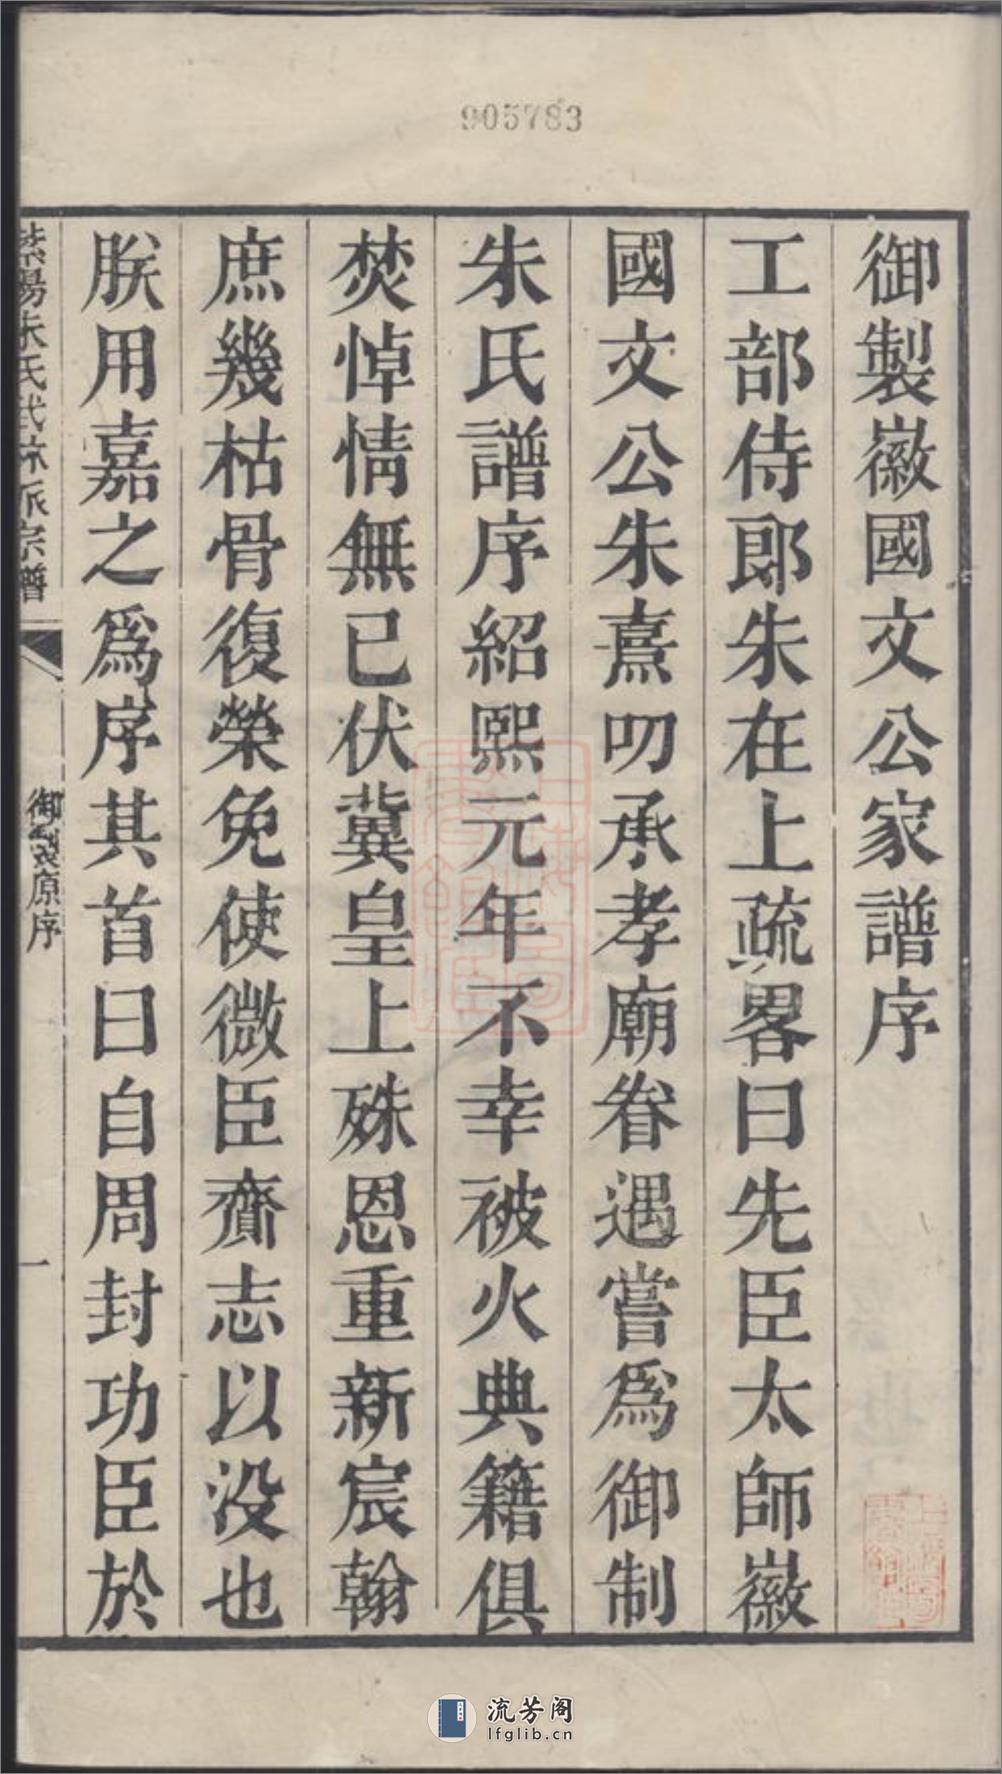 905783
御製徽國文公家譜序
工部侍郎朱在上疏畧曰先臣太師徽
國文公朱熹叨承孝廟眷遇嘗爲御制
朱氏譜序紹熙元年不幸被火典籍俱
焚悼情無已伏冀皇上殊恩重新宸翰
庶幾枯骨復榮免使微臣齎志以没也
朕用嘉之爲序其首曰自周封功臣於
紫陽朱氏武林派宗譜
御製原序
一
流芳阁
lfglib.cn